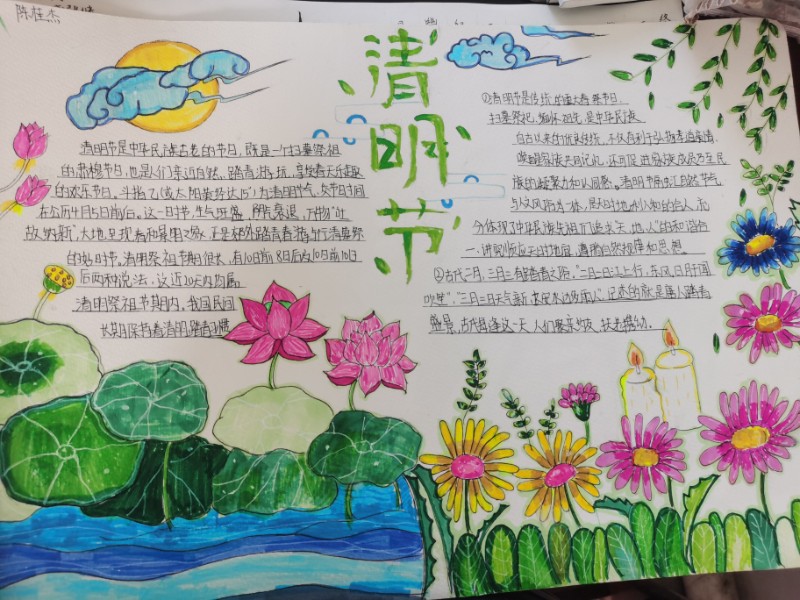 陈桂杰
清明节
清明节是中华民族古老的节日，既是一个扫墓祭祖
的肃穆节日，也是人们亲近自然、踏青游玩、享受春天乐趣
的欢乐节日。斗指乙(或太阳黄经达15°)为清明节气，交节时间
在公历4月5日前后。这一时节，生气旺盛、阴气衰退，万物"吐
故纳新"，大地呈现春和景明之象，正是郊外踏青春游与行清墓祭
的好时节。清明祭祖节期很长，有10日前8日后及10日前10日
后两种说法，这近20天内均属
清明祭祖节期内，我国民间
长期保持着清明踏青习惯
①清明节是传统的重大春祭节日，
扫墓祭祀、缅怀祖先，是中华民族
自古以来的优良传统，不仅有利于弘扬孝道亲情、
唤醒家族共同记忆，还可促进家族成员乃至民
族的凝聚力和认同感。清明节融汇自然节气
与人文风俗为一体，是天时地利人和的合一，充
分体现了中华民族先祖们追求天、地、人的和谐合
一，讲究顺应天时地宜、遵循自然规律和思想
②古代二月、三月三有踏青之俗。"二月二日江上行，东风日暖闻
吹笙"，"三月三日天气新，长安水边多丽人"，记述的就是唐人踏青
盛景，古代每逢这一天人们聚亲约友、扶老携幼。